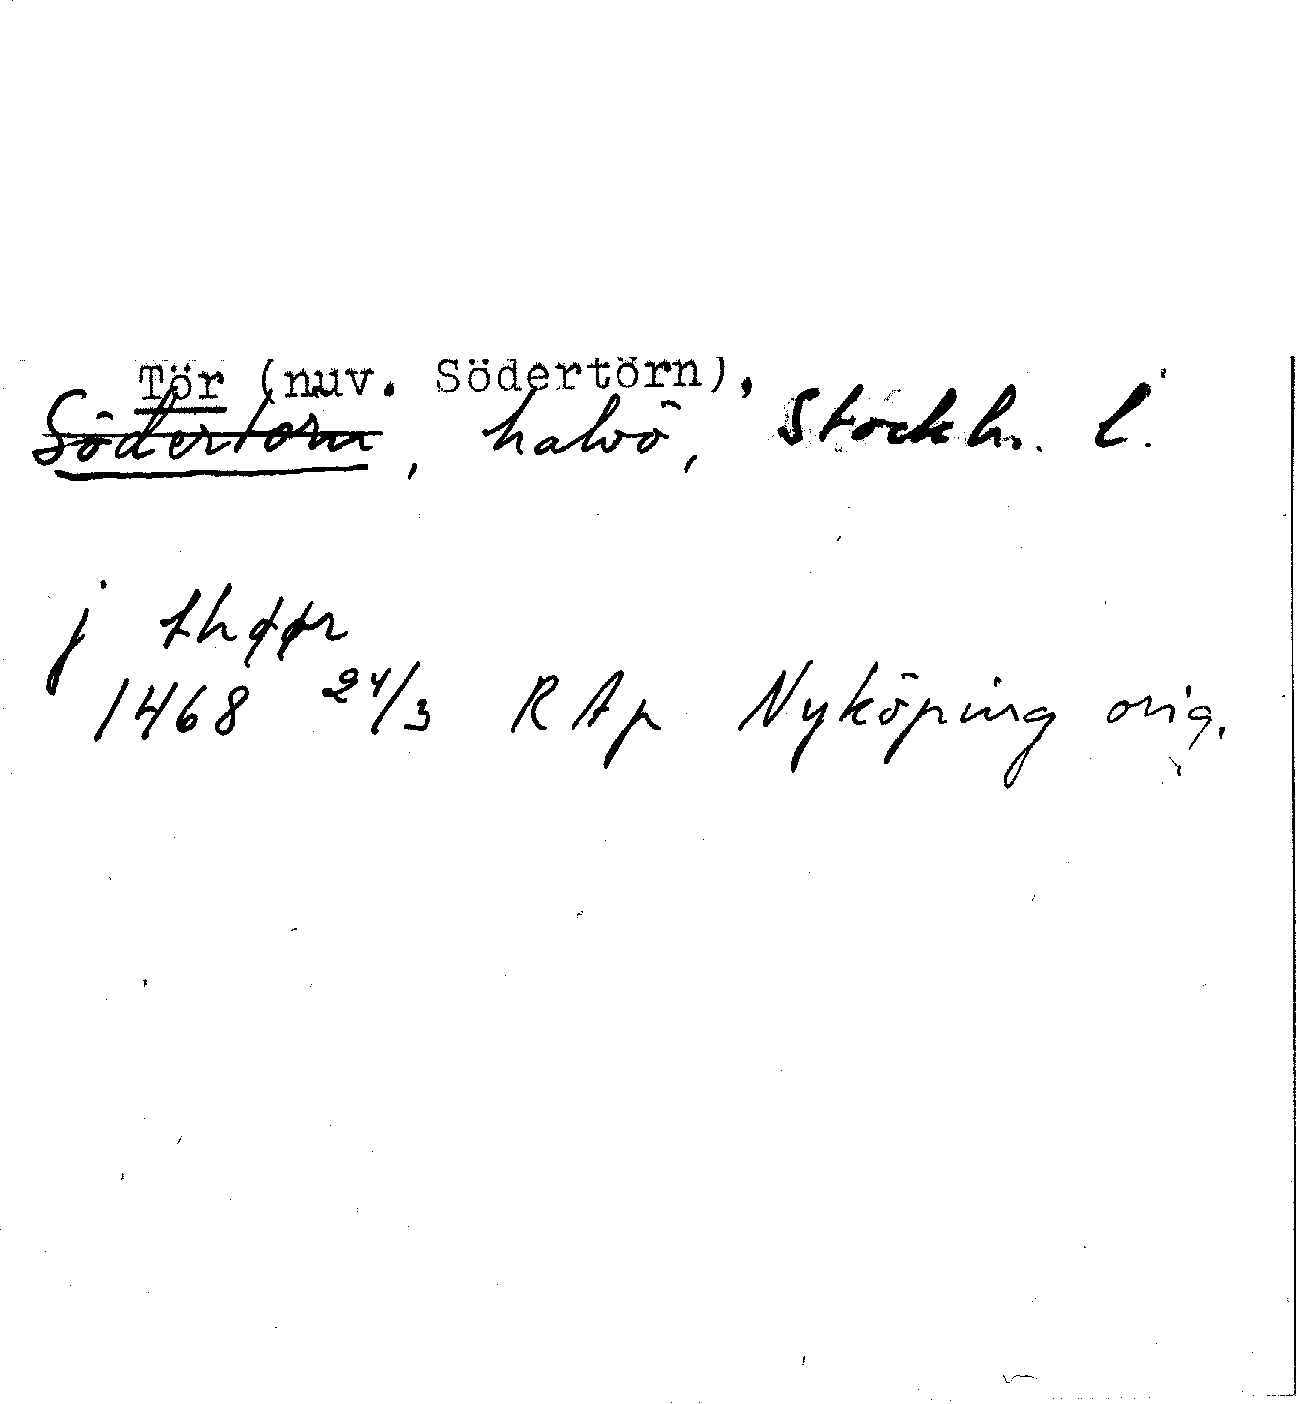 Tör (nuv. Södertörn),
Södertörn, halvö, Stockh. l.
j thøør
1468 24/3 RAp Nyköping orig.